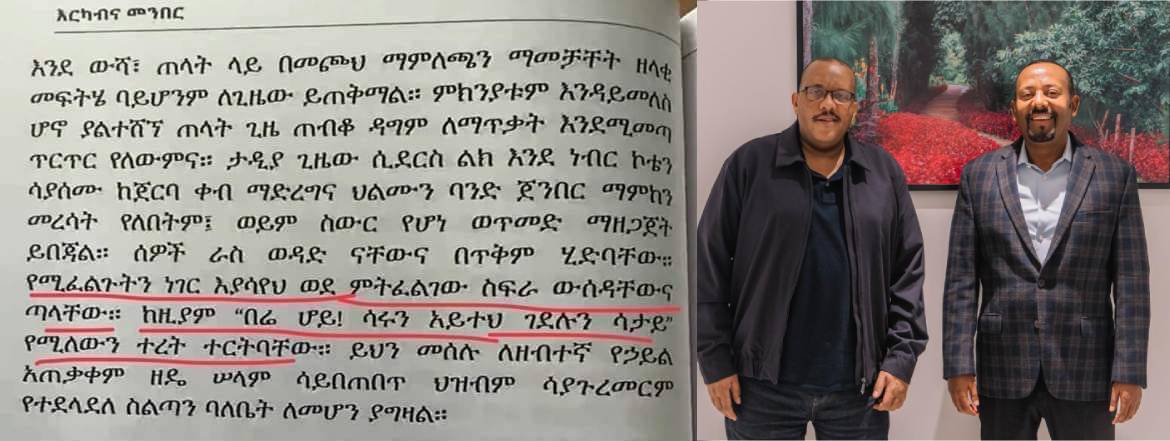 እርካብና መንበር
እንደ ውሻ፣ ጠላት ላይ በመጮህ ማምለጫን ማመቻቸት ዘላቂ
መፍትሄ ባይሆንም ለጊዜው ይጠቅማል። ምክንያቱም እንዳይመለስ
ሆኖ ያልተሸኘ ጠላት ጊዜ ጠብቆ ዳግም ለማጥቃት እንደሚመጣ
ጥርጥር የለውምና። ታዲያ ጊዜው ሲደርስ ልክ እንደ ነብር ኮቴን
ሳያሰሙ ከጀርባ ቀብ ማድረግና ህልሙን ባንድ ጀንበር ማምከን
መረሳት የለበትም፤ ወይም ስውር የሆነ ወጥመድ ማዘጋጀት
ይበጃል። ሰዎች ራስ ወዳድ ናቸውና በጥቅም ሂድባቸው።
የሚፈልጉትን ነገር እያሳየህ ወደ ምትፈልገው ስፍራ ውሰዳቸውና
ጣላቸው። ከዚያም “በሬ ሆይ! ሳሩን አይተህ ገደሉን ሳታይ”
የሚለውን ተረት ተርትባቸው። ይህን መሰሉ ለዘብተኛ የኃይል
አጠቃቀም ዘዴ ሠላም ሳይበጠበጥ ህዝብም ሳያጉረመርም
የተደላደለ ስልጣን ባለቤት ለመሆን ያግዛል።